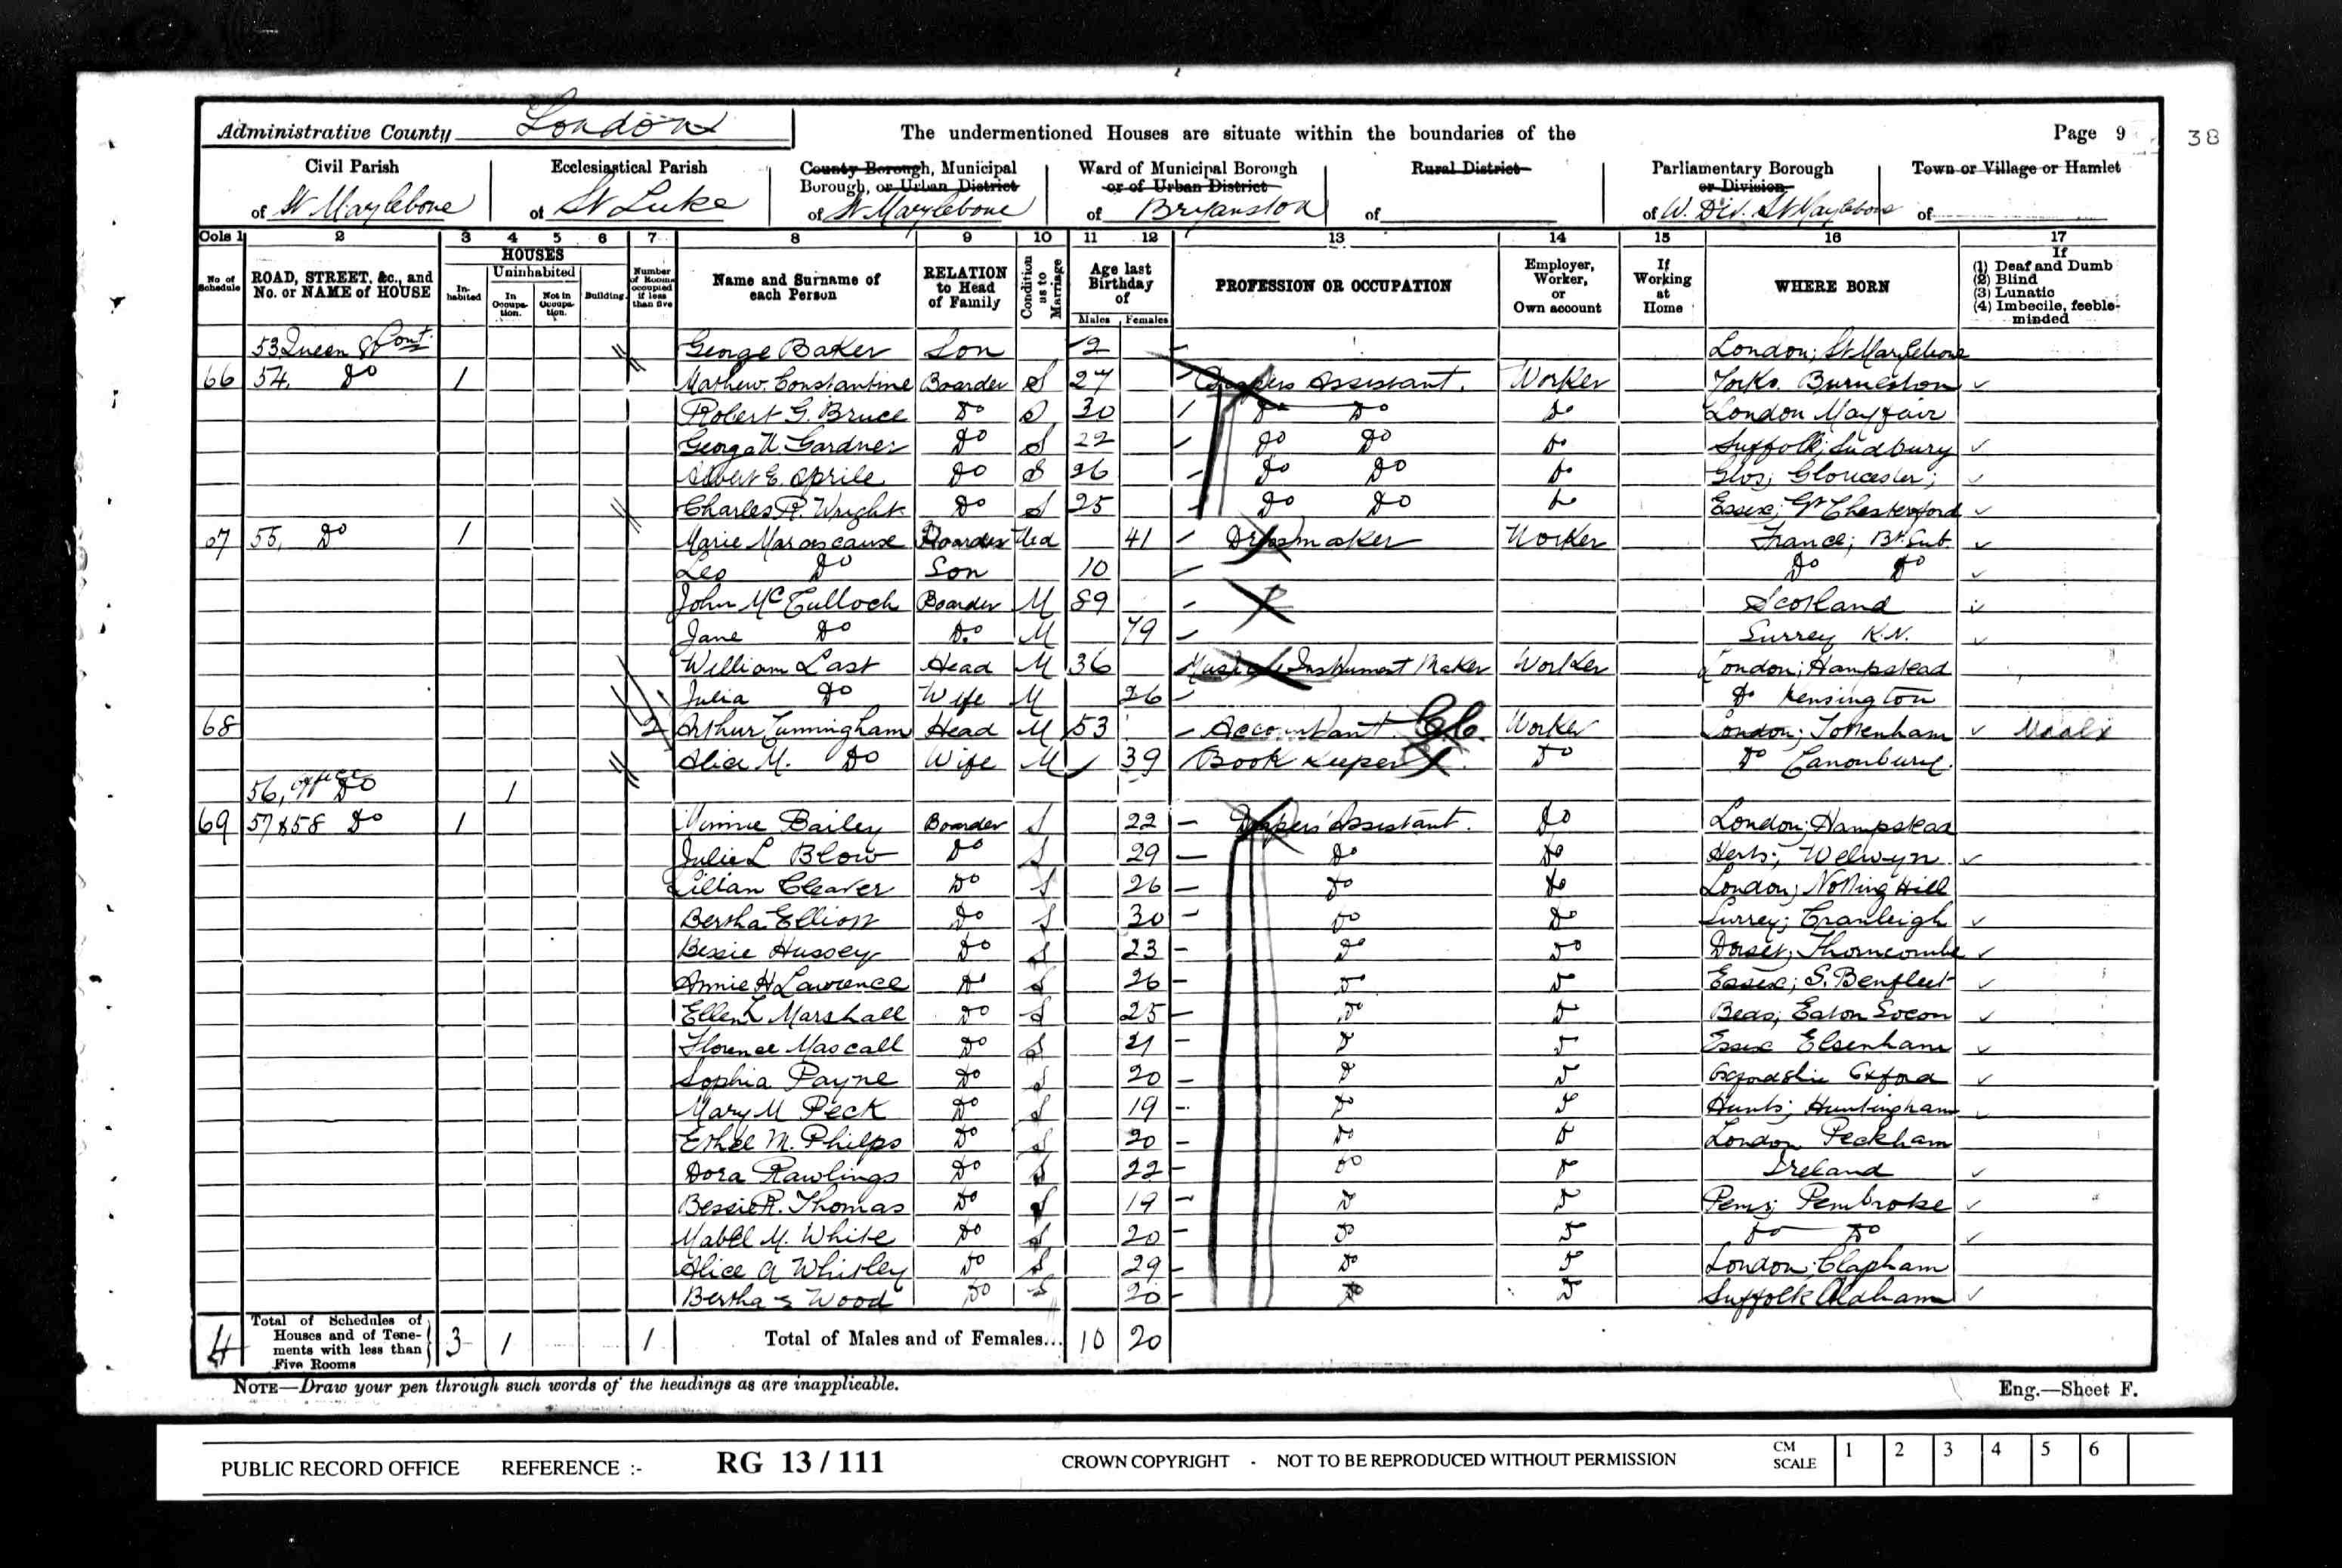 Administrative County London The undermentioned Houses are situate within the boundaries of the Page 9 38
Civil Parish of St Marylebone
Ecclesiastical Parish of St Luke
County Borough, Municipal Borough, or Urban District of St Marylebone
Ward of Municipal Borough or of Urban District of Bryanston
Rural District of
Parliamentary Borough or Division of W. Div. St Marylebone
Town or Village or Hamlet of
Cols 1 2 3 4 5 6 7 8 9 10 11 12 13 14 15 16 17
No of Schedule
ROAD, STREET, &c., and No. or NAME of HOUSE
HOUSES
Inhabited
Uninhabited
In Occupation.
Not in Occupation.
Building.
Number of Rooms occupied if less than five
Name and Surname of each Person
RELATION to Head of Family
Condition as to Marriage
Age last Birthday of
Males Females
PROFESSION OR OCCUPATION
Employer, Worker, or Own account
If Working at Home
WHERE BORN
If
(1) Deaf and Dumb
(2) Blind
(3) Lunatic
(4) Imbecile, feeble-minded
53 Queen St Cont. George Baker Son 2 London; St Marylebone
66 54, Do 1 Mathew Constantine Boarder S 27 Drapers Assistant. Worker Yorks. Burneston
Robert G. Bruce Do S 30 Do Do Do London Mayfair
George Gardner Do S 22 Do Do Do Suffolk; Sudbury
Albert E. Do S 26 Do Do Do Glos; Gloucester;
Charles R. Wright Do S 25 Do Do Do Essex; Gt Chesterford
67 55, Do 1 Marie Boarder Wid 41 Dressmaker Worker France; Bh Sub.
Leo Do Son 10 Do Do
John McCulloch Boarder M 89 Scotland
Jane Do Do M 79 Surrey K.N.
William Last Head M 36 Musical Instrument Maker Worker London; Hampstead
Julia Do Wife M 26 Do Kensington
68 2 Arthur Cunningham Head M 53 Accountant Clk. Worker London; Tottenham
Alice M. Do Wife M 39 Book Keeper Do Do Canonbury.
56, office Do 1
69 57 & 58 Do 1 Minnie Bailey Boarder S 22 Drapers' Assistant. Do London; Hampstead
Julie L Blow Do S 29 Do Do Herts; Welwyn
Lilian Cleaver Do S 26 Do Do London; Notting Hill
Bertha Elliott Do S 30 Do Do Surrey; Cranleigh
Bessie Hussey Do S 23 Do Do Dorset; Thorncombe
Annie H Lawrence Do S 26 Do Do Essex; S. Benfleet
Ellen L Marshall Do S 25 Do Do Beds; Eaton Socon
Florence Mascall Do S 21 Do Do Essex Elsenham
Sophia Payne Do S 20 Do Do Oxfordshire Oxford
Mary M Peck Do S 19 Do Do Hunts; Huntingham
Ethel M. Philps Do S 20 Do Do London Peckham
Dora Rawlings Do S 22 Do Do Ireland
Bessie R. Thomas Do S 19 Do Do Pem; Pembroke
Mabel M. White Do S 20 Do Do Do Do
Alice A Whitley Do S 29 Do Do London; Clapham
Bertha Wood Do S 20 Do Do Suffolk Aldham
4 Total of Schedules of Houses and of Tenements with less than Five Rooms 3 1 1 Total of Males and of Females... 10 20
NOTE—Draw your pen through such words of the headings as are inapplicable. Eng.—Sheet F.
PUBLIC RECORD OFFICE REFERENCE :- RG 13 / 111 CROWN COPYRIGHT - NOT TO BE REPRODUCED WITHOUT PERMISSION CM SCALE 1 2 3 4 5 6